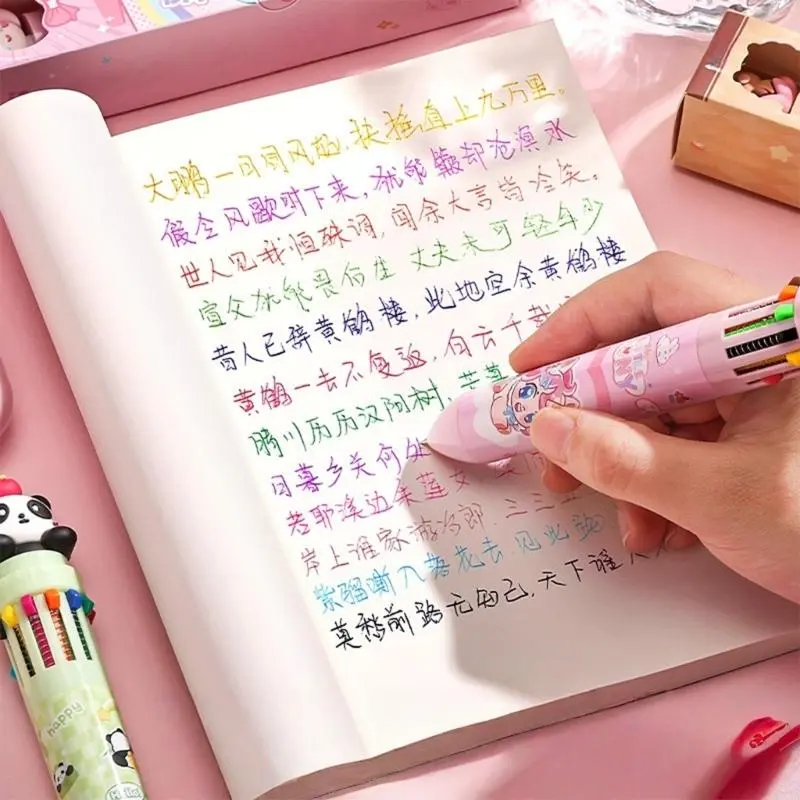 大鹏一日同风起,扶摇直上九万里。
假令风歇时下来,犹能簸却沧溟水
世人见我恒殊调,闻余大言皆冷笑。
宣父犹能畏后生 丈夫未可轻年少
昔人已辞黄鹤楼,此地空余黄鹤楼
黄鹤一去不复返,白云千载
晴川历历汉阳树,芳草
日暮乡关何处
若耶溪边采莲女
岸上谁家游冶郎.三三五
紫骝嘶入落花去.见此踟
莫愁前路无知己,天下谁人
happy
Hello